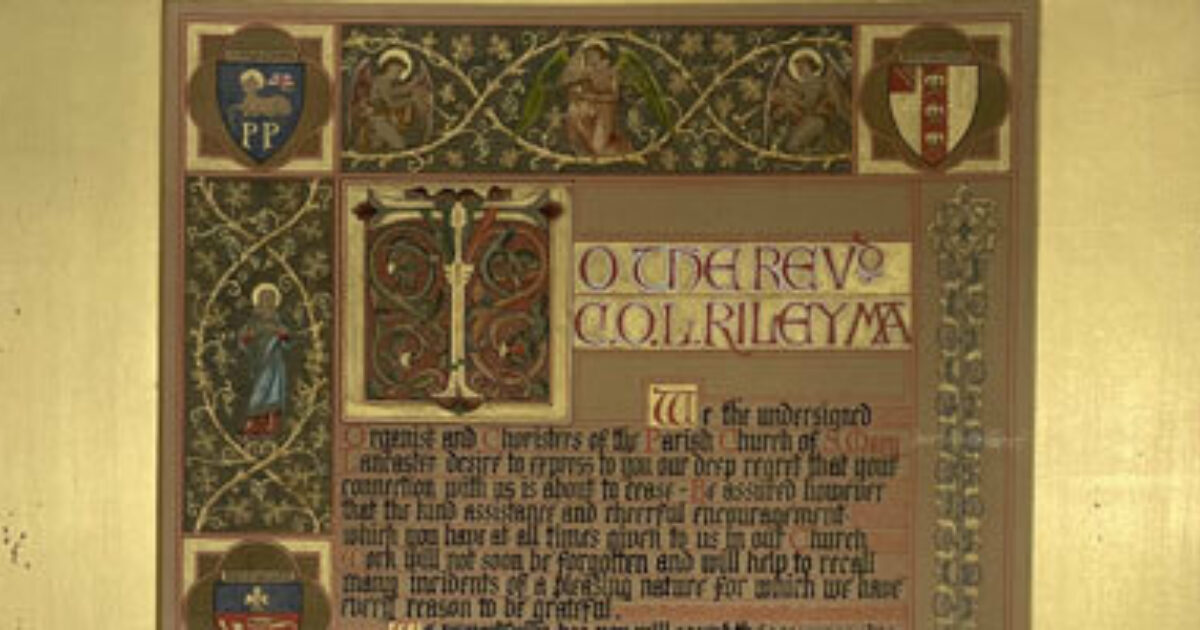 PP
TO THE REVD
C.O.L. RILEY MA
We the undersigned
Organist and Choristers of the Parish Church of S. Mary
Lancaster desire to express to you our deep regret that your
connection with us is about to cease - Be assured however
that the kind assistance and cheerful encouragement
which you have at all times given to us in our Church
Work will not soon be forgotten and will help to recall
many incidents of a pleasing nature for which we have
every reason to be grateful.
you will